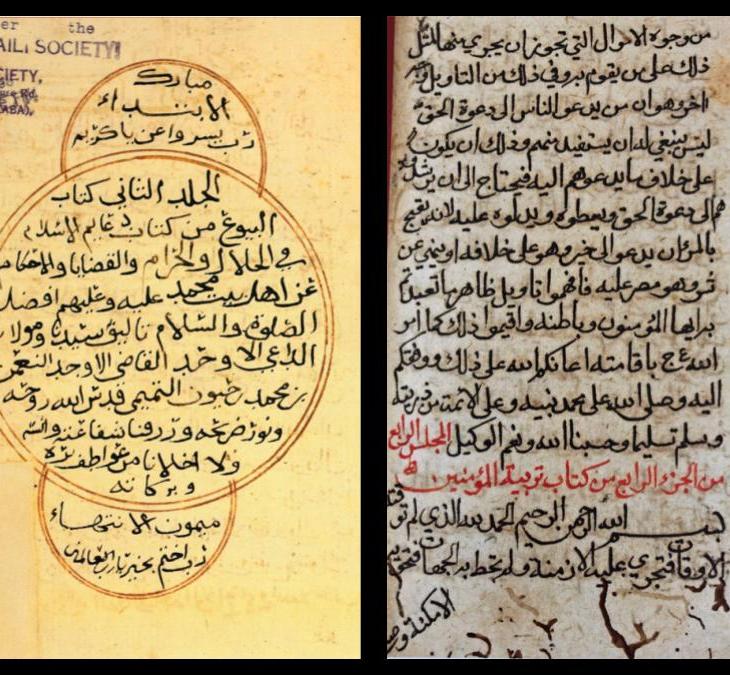 er the
AILI SOCIETY
CIETY,
مبارك
الابتداء
رب يسر واعن يا كريم
الجلد الثاني كتاب
البيوع من كتاب دعايم الاسلام
في الحلال والحرام والقضايا والاحكام
عن اهل بيت محمد عليه وعليهم افضل
الصلوة والسلام تاليف سيدنا ومولانا
الداعي الاوحد القاضي الاوحد النعمن
بن محمد بن حيون التميمي قدس الله روحه
ونور ضريحه ورزقنا شفاعته وانسه
ولا اخلانا من عواطف
وبركاته
ميمون الانتهاء
رب اختم بخير يارب العالمين
من وجوه الاموال التي تجوز ان يجري منها
ذلك على من يقوم به وفي ذلك من التاويل
اخر وهو ان من يدعو الناس الى دعوة الحق
ليس ينبغي له ان يستفيد منهم وذلك ان يكون
على خلاف ما يدعوهم اليه فيحتاج الى ان
هم الى دعوة الحق ويعطوه ويدلوه عليه لانه يقبح
بالمرء ان يدعو الى خير وهو على خلافه او ينهي عن
شر وهو مصر عليه فافهموا تاويل ظاهر ما تعبدتم
به ايها المؤمنون وباطنه واقيموا ذلك كما امر
الله عج باقامته اعانكم الله على ذلك ووفقكم
اليه وصلى الله على محمد نبيه وعلى الائمة من ذريته
وسلم تسليما وحسبنا الله ونعم الوكيل المجلس الرابع
من الجزء الرابع من كتاب تربية المؤمنين
بسم الله الرحمن الرحيم الحمد لله الذي لم
الاوقات فتجري عليه الازمنة ولم تحط به الجهات
الامكنة